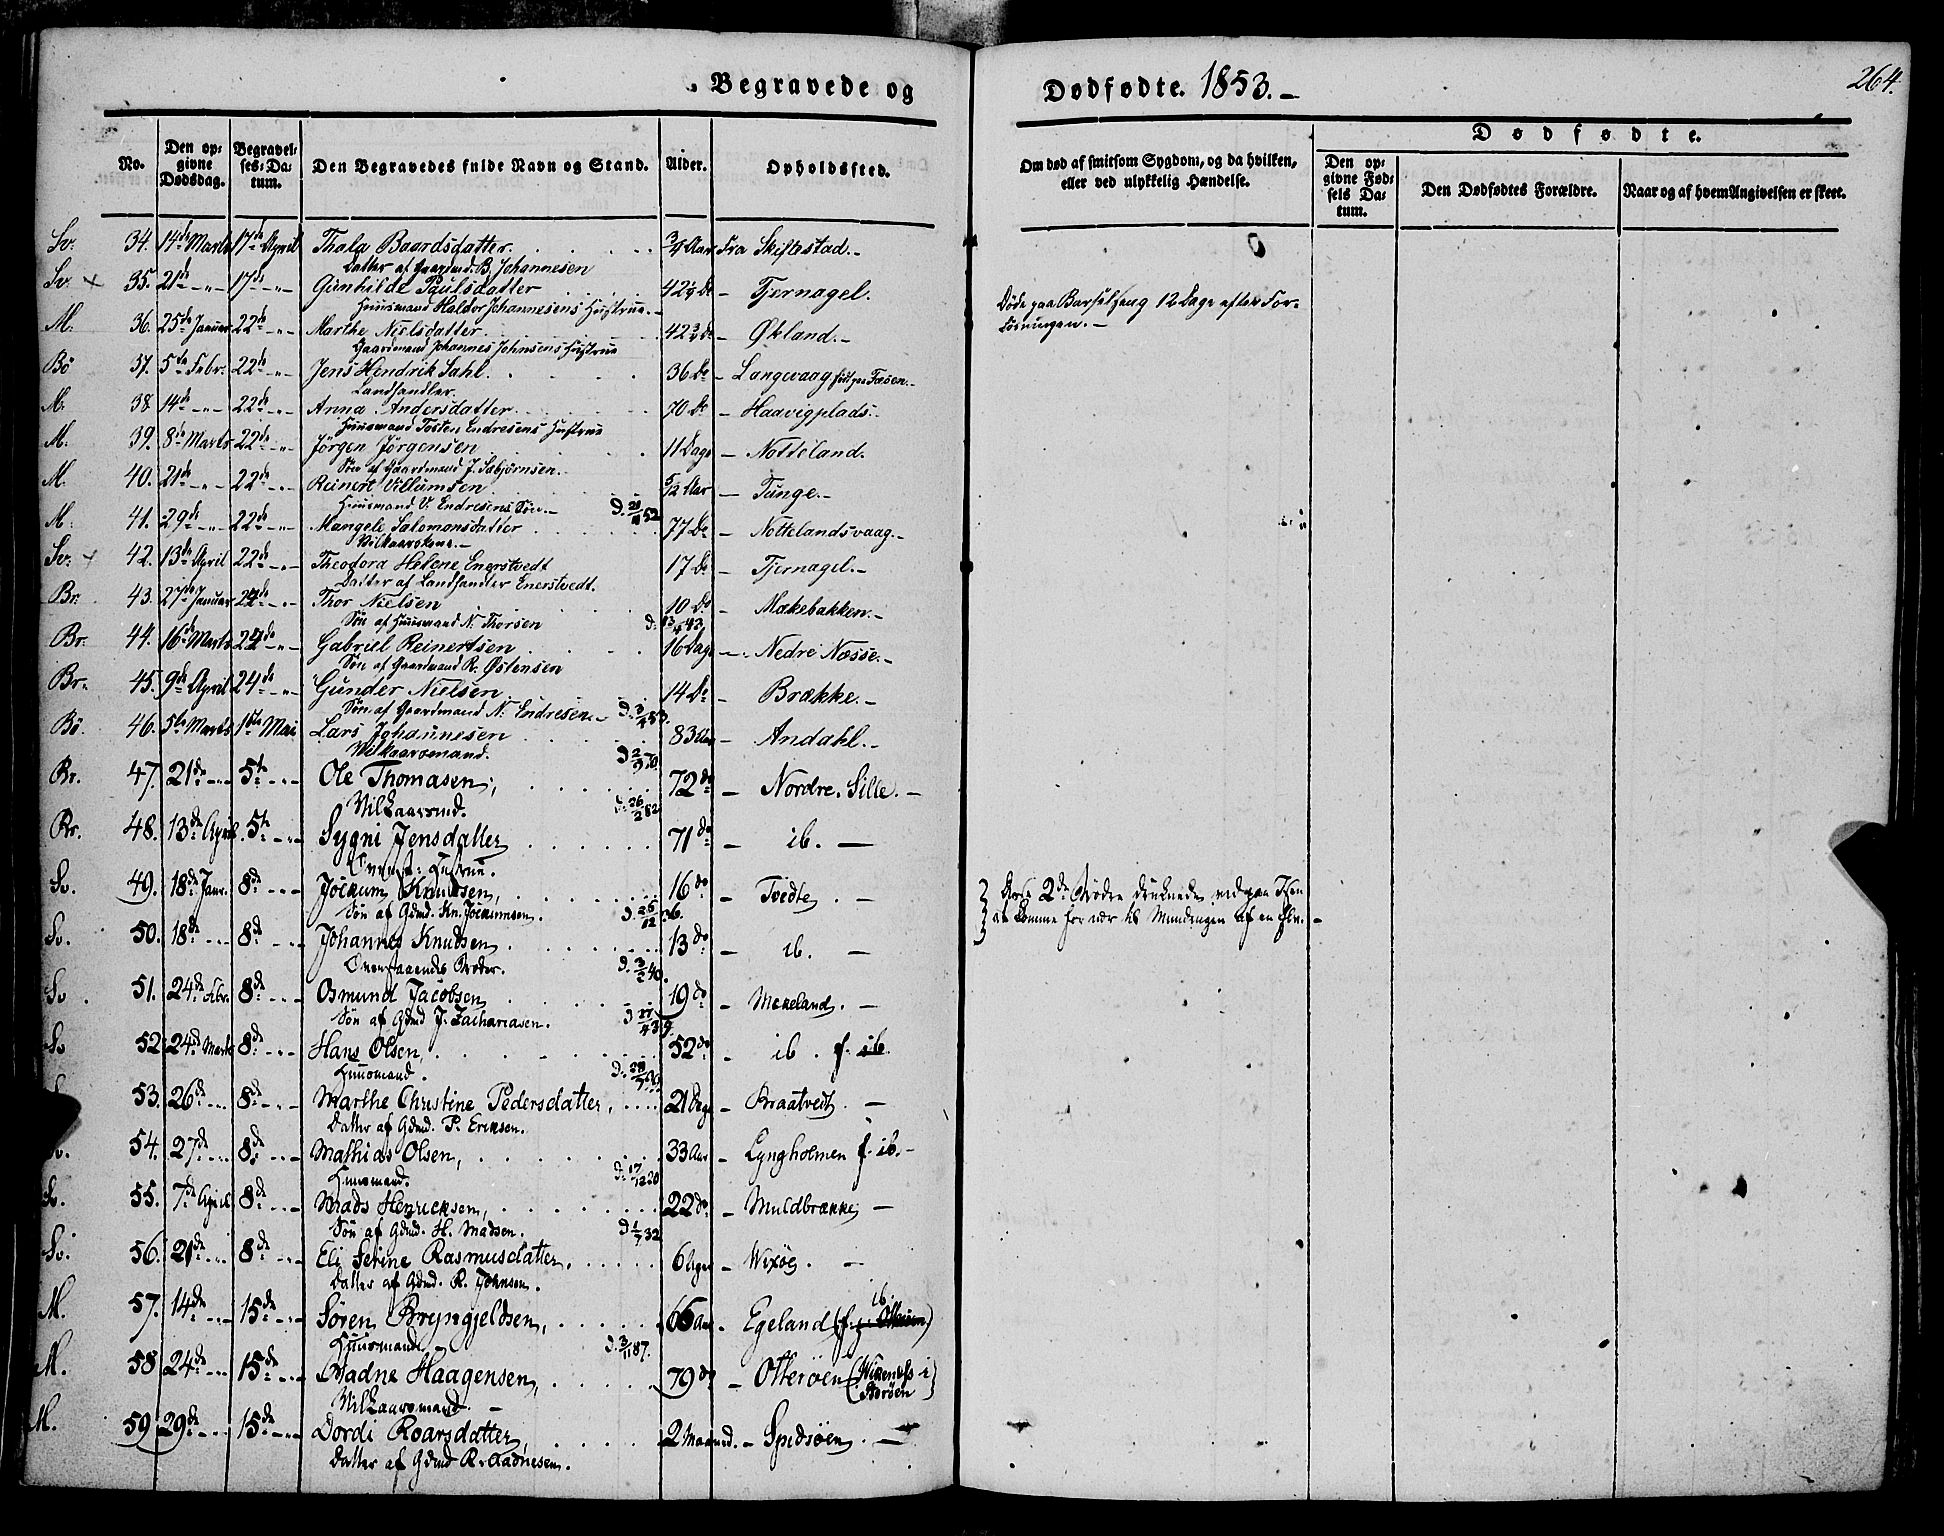 Begravede og
Dødfødte. 1853.-
264.
No.
Den opgivne Dødsdag.
Begravelses-Datum.
Den Begravedes fulde Navn og Stand.
Alder.
Opholdssted.
Om død af smitsom Sygdom, og da hvilken, eller ved ulykkelig Hændelse.
Dødfødte.
Den opgivne Fødsels Datum.
Den Dødfødtes Forældre.
Naar og af hvem Angivelsen er skeet.
Sv. 34. 14de Marts 17de April Thala Baardsdatter. 3/4 Aar Fra Skiftestad.-
Datter af Gaardmd. B. Johannesen
Sv. + 35. 21de -„- 17de -„- Gunhilde Paulsdatter 42 Do - Tjernagel.
Huusmand Haldor Johannesens Hustrue.- Døde paa Barselseng 12 Dage efter For-
løsningen.-
M. 36. 25de Januar 22de -„- Marthe Nielsdatter 42 Do - Økland.-
Gaardmand Johannes Johnsens Hustrue
Bö 37. 5te Febr. 22de -„- Jens Hendrik Dahl. 36 Do - Langevaag
Landhandler.
M. 38 14de -„- 22de -„- Anna Andersdatter 70 Do - Haavigplads.-
Huusmand Tosten Endresens Hustrue
M. 39. 8de Marts 22de Jørgen Jørgensen 11 Dage - Notteland.
Søn af Gaardmand J. Asbjørnsen.
M. 40. 21de -„- 22de -„- Reinert Villumsen 5/12 Aar - Tunge.-
Huusmand V. Endresens Søn.- D. 21/11 52
M. 41. 29de -„- 22de -„- Mangele Salomonsdatter 77 Do - Nottelandsvaag.-
Vilkaarskone.-
Sv. + 42. 13de April 22de -„- Theodora Helene Enerstvedt 17 Do - Tjernagel.-
Datter af Landhandler Enerstvedt.
Br. 43. 27de Januar 24de -„- Thor Nielsen 10 Do - Mækebakken.-
Søn af Huusmand N. Thorsen
Br. 44. 16de Marts 24de -„- Gabriel Reinertsen 16 Dage - Nedre Næsse.-
Søn af Gaardmand R. Østensen
Br. 45. 9de April 24de -„- Gunder Nielsen 14 Do - Brække.-
Søn af Gaardmand N. Endresen.-
Bö. 46. 5te Marts 1ste Mai Lars Johannesen 83 Aar - Andahl.-
Vilkaarsmand. D. 2/9 70.
Br. 47. 21de -„- 5te -„- Ole Thomasen, 72 do - Nordre. Sille.-
Vilkaarsmd. D. 26/2 82
Br. 48. 13de April 5te -„- Sygni Jensdatter 71 do - ib. -
Ovenst: Hustrue.
Sv. 49. 18de Janr. 8de -„- Jöckum Knudsen, 16 do - Tvedte. -
Søn af Gdmd. Kn. Jockumsen. D. 26/12 36. Disse 2de Brødre druknede ved paa Isen
Sv. 50. 18de -„- 8de -„- Johannes Knudsen 13 do - ib. - at komme for nær til Mundingen af en Elv.-
Ovenstaaendes Broder. D. 3/3 40.
Sv. 51. 24de Febr. 8de -„- Osmund Jacobsen 19 do - Mækeland. -
Søn af Gdmd J. Zachariasen.
Sv 52 24de Marts 8de -„- Hans Olsen, 52 do - ib. f. ib.
Huusmand.
53. 26de -„- 8de -„- Marthe Christine Pedersdatter, 21 Dage - Braatvedt. -
Datter af Gdmd. P. Eriksen.
54. 27de -„- 8de -„- Mathias Olsen, 33 Aar - Lyngholmen f. ib.-
Huusmand. D. 17/12 20
Sv. 55. 7de April 8de -„- Mads Henricksen, 22 do - Muldbrække -
Søn af Gdmd. H. Madsen. D. 1/7 32
Sv. 56. 21de -„- 8de -„- Eli Serine Rasmusdatter, 6 Uger - Vixöe. -
Datter af Gdmd. R. Johnsen.
M. 57. 14de -„- 15de -„- Søren Bryngjeldsen, 66 Aar - Egeland (f. ib.
Huusmand D. 3/11 87.
M. 58 24de -„- 15de -„- Aadne Haagensen, 79 do - Otteröen (Wikenæss i Storöen)
Vilkaarsmand -
M. 59 29de -„- 15de -„- Dordi Roarsdatter 2 Maaned. - Spidsöen. -
Datter af Gdmd R. Aadnesen.